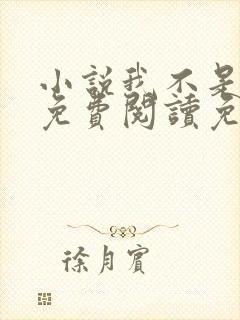 小説我不是
免費閱讀免
徐月賓